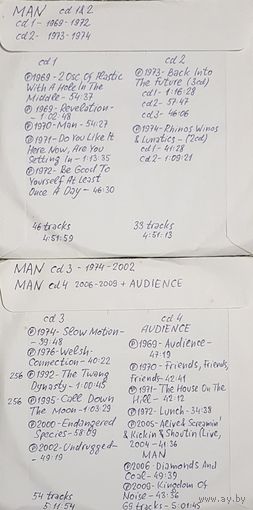 MAN cd 1&2
cd1- 1969-1972
cd2- 1973-1974
cd1
℗1969-2 Osc Of Plastic
With A Hole In The
Middle- 54:37
℗1969- Revelation-
- 1:02:48
℗1970-Man- 54:27
℗1971-Do You Like It
Here Now, Are You
Setting In- 1:13:35
℗1972-Be Good To
Yourself At Least
Once A Day- 46:30
46 tracks
4:51:59
cd 2
℗1973-Back Into
The Future (3cd)
cd1- 1:16:28
cd2- 57:47
cd3- 46:06
℗1974-Rhinos Winos
& Lunatics- (2cd)
cd1- 41:28
cd2- 1:09:21
33 tracks
4:51:13
MAN cd 3 - 1974-2002
MAN cd4 2006-2009 + AUDIENCE
cd 3
℗1974- Slow Motion-
- 39:48
℗1976-Welsh-
Connection- 40:22
256 ℗1992-The Twang
Dynasty- 1:00:45
256 ℗1995-Call Down
The Moon-1:03:29
℗2000-Endangered
Species-58:09
℗2002-Undrugged-
- 49:19
54 tracks
5:11:54
cd 4
AUDIENCE
℗1969-Audience-
47:19
℗1970-Friends, Friends,
Friends-42:41
℗1971-The House On The
Hill- 42:12
℗1972-Lunch-34:38
℗2005-Alive& Screamin'
& Kickin & Shoutin (Live,
2004-41:36
MAN
℗2006-Diamonds And
Coal- 49:39
℗2009-Kingdom Of
Noise- 43:36
69 tracks- 5:01:45
www.ay.by